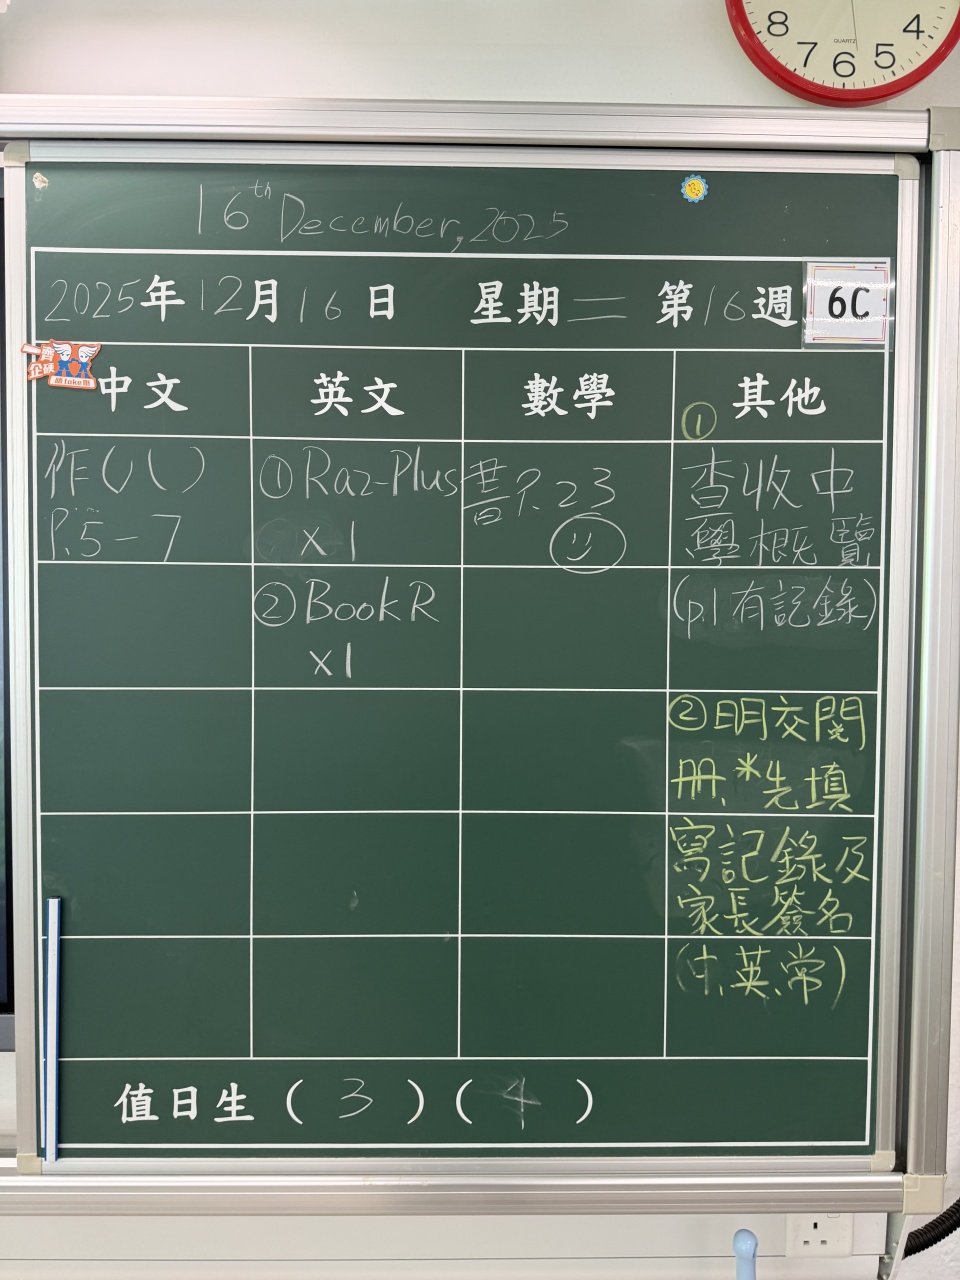 8 7 6 5 4
QUARTZ
16th December, 2025
2025年12月16日 星期二 第16週 6C
一齊企硬
中文 英文 數學 其他
作(八)
P.5-7
①Raz-Plus
x1
②BookR
x1
書P.23
①
查收中
學概覽
(p.1有記錄)
②明交閱
冊*先填
寫記錄及
家長簽名
(中、英、常)
值日生(3)(4)